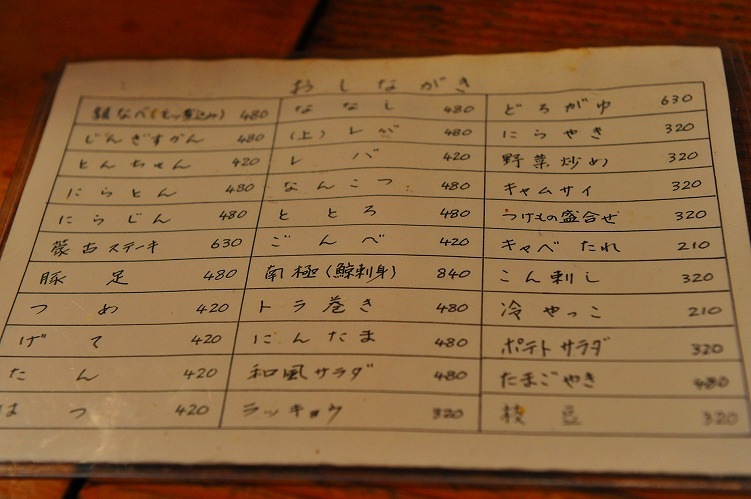 おしながき
なべ(もつ煮込み) 480
じんぎすかん 480
とんちゃん 420
にらとん 480
にらじん 480
蒙古ステーキ 630
豚足 480
つめ 420
げて 420
たん 420
はつ 420
ななし 480
(上)レバ 480
レバ 420
なんこつ 480
ととろ 480
ごんべ 420
南極(鯨刺身) 840
トラ巻き 480
にんたま 480
和風サラダ 480
ラッキョウ 320
どろがゆ 630
にらやき 320
野菜炒め 320
キャムサイ 320
つけもの盛合せ 320
キャベたれ 210
こん刺し 320
冷やっこ 210
ポテトサラダ 320
たまごやき 480
枝豆 320